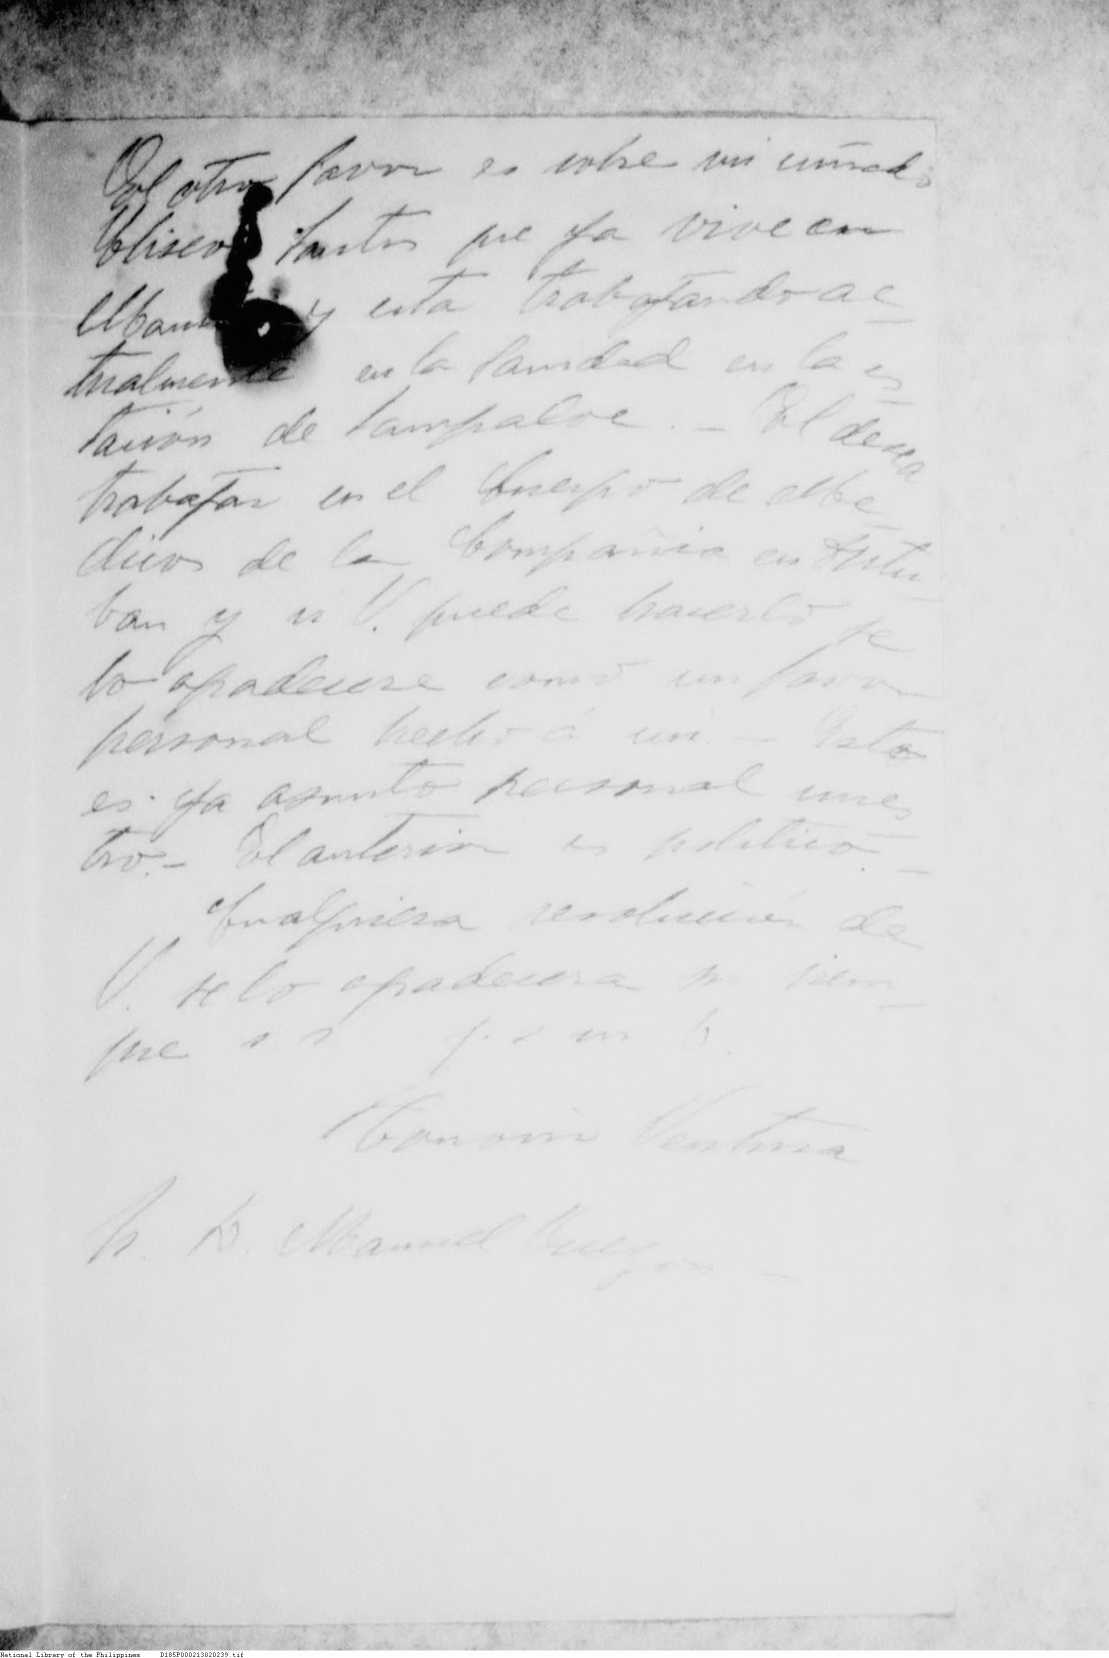 El otro favor es sobre mi cuñado
Eliseo Santos que ya vive en
Manila y esta trabajando ac-
tualmente en la Sanidad en la es-
tación de Sampaloc. - El desea
trabajar en el Cuerpo de Me-
dicos de la Compañia en Tutu-
ban y si V. puede hacerlo se
lo agradecere como un favor
personal hecho á mi - Esto
es ya asunto personal nues
tro. - El anterior es politico. -
Cualquiera resolución de
V. se lo agradecera su siem-
pre s s q. s m b.
Honorio Ventura
H. D. Manuel Quezon -
National Library of the Philippines D185P000213020239.tif